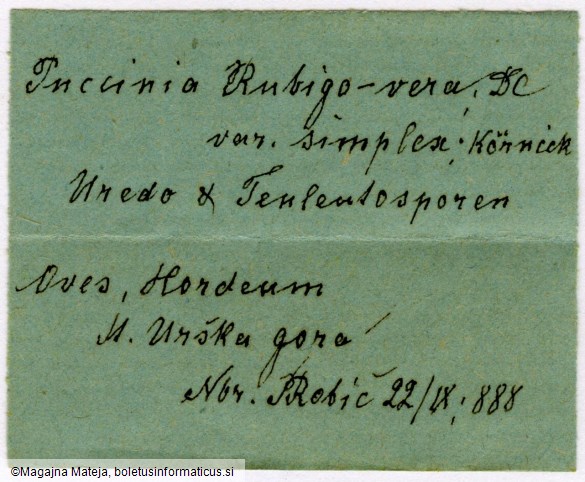 Puccinia Rubigo-vera, DC
var. simplex; Körnick
Uredo & Teuleutosporen
Oves, Hordeum
M. Urška gora
Nbr. Robič 22/IX; 888
©Magajna Mateja, boletusinformaticus.si